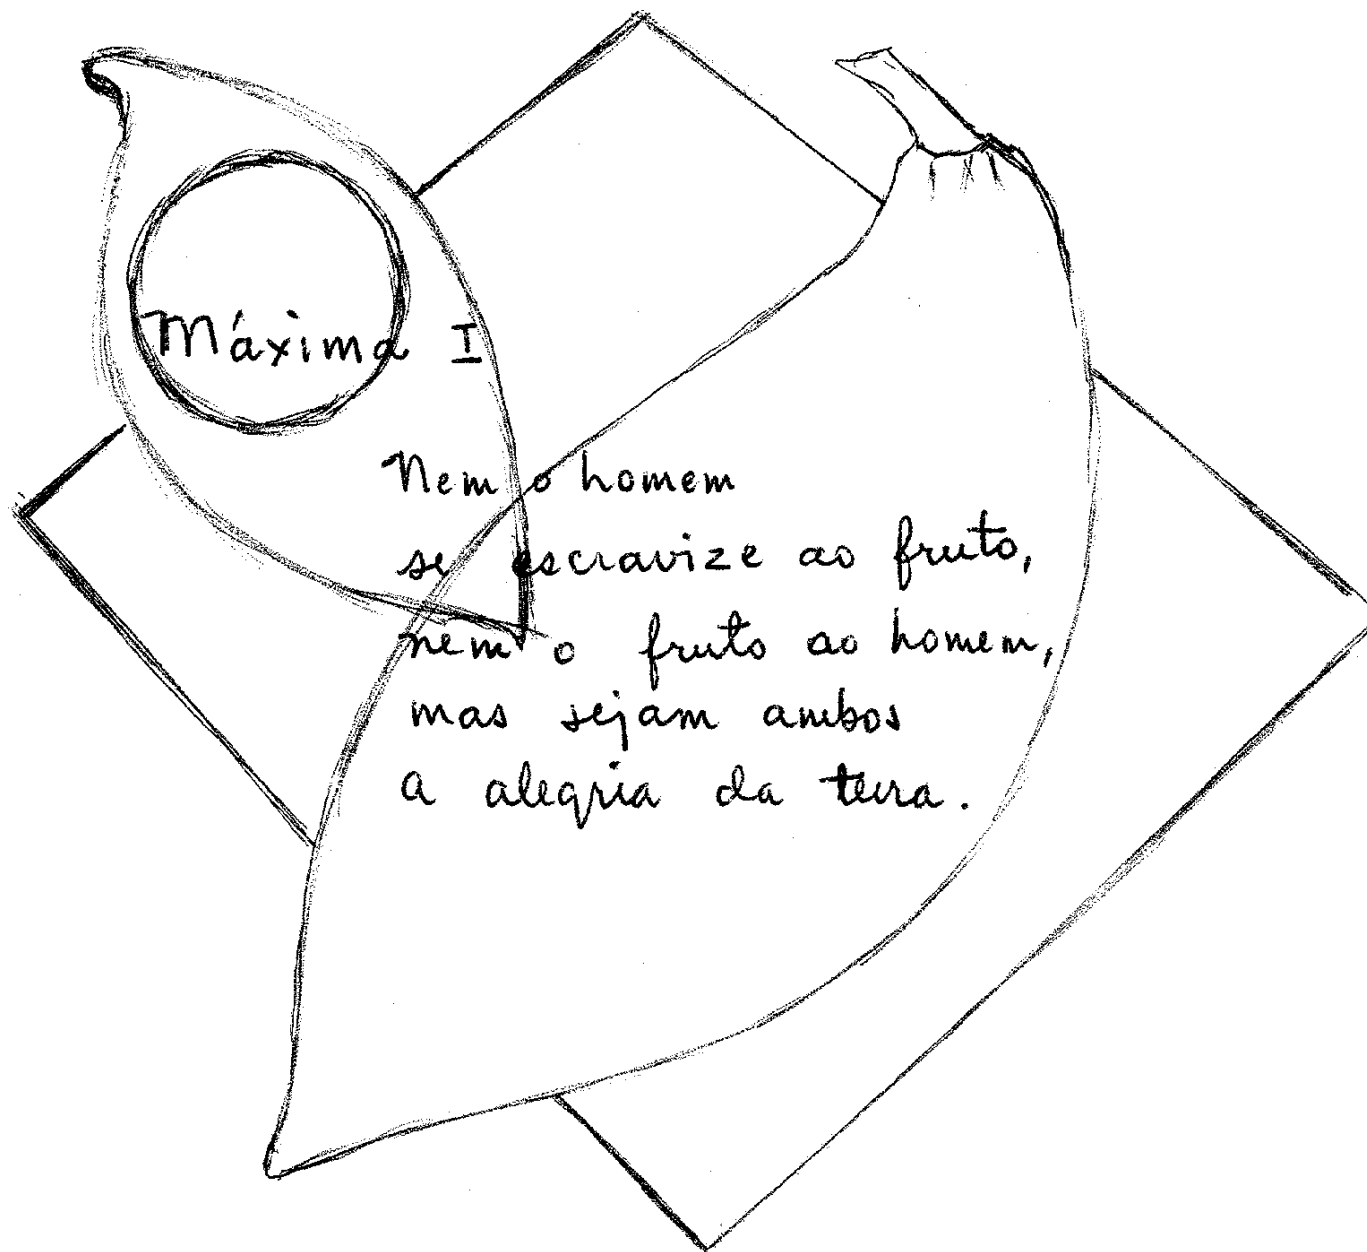 Máxima I
Nem o homem
se escravize ao fruto,
nem o fruto ao homem,
mas sejam ambos
a alegria da terra.